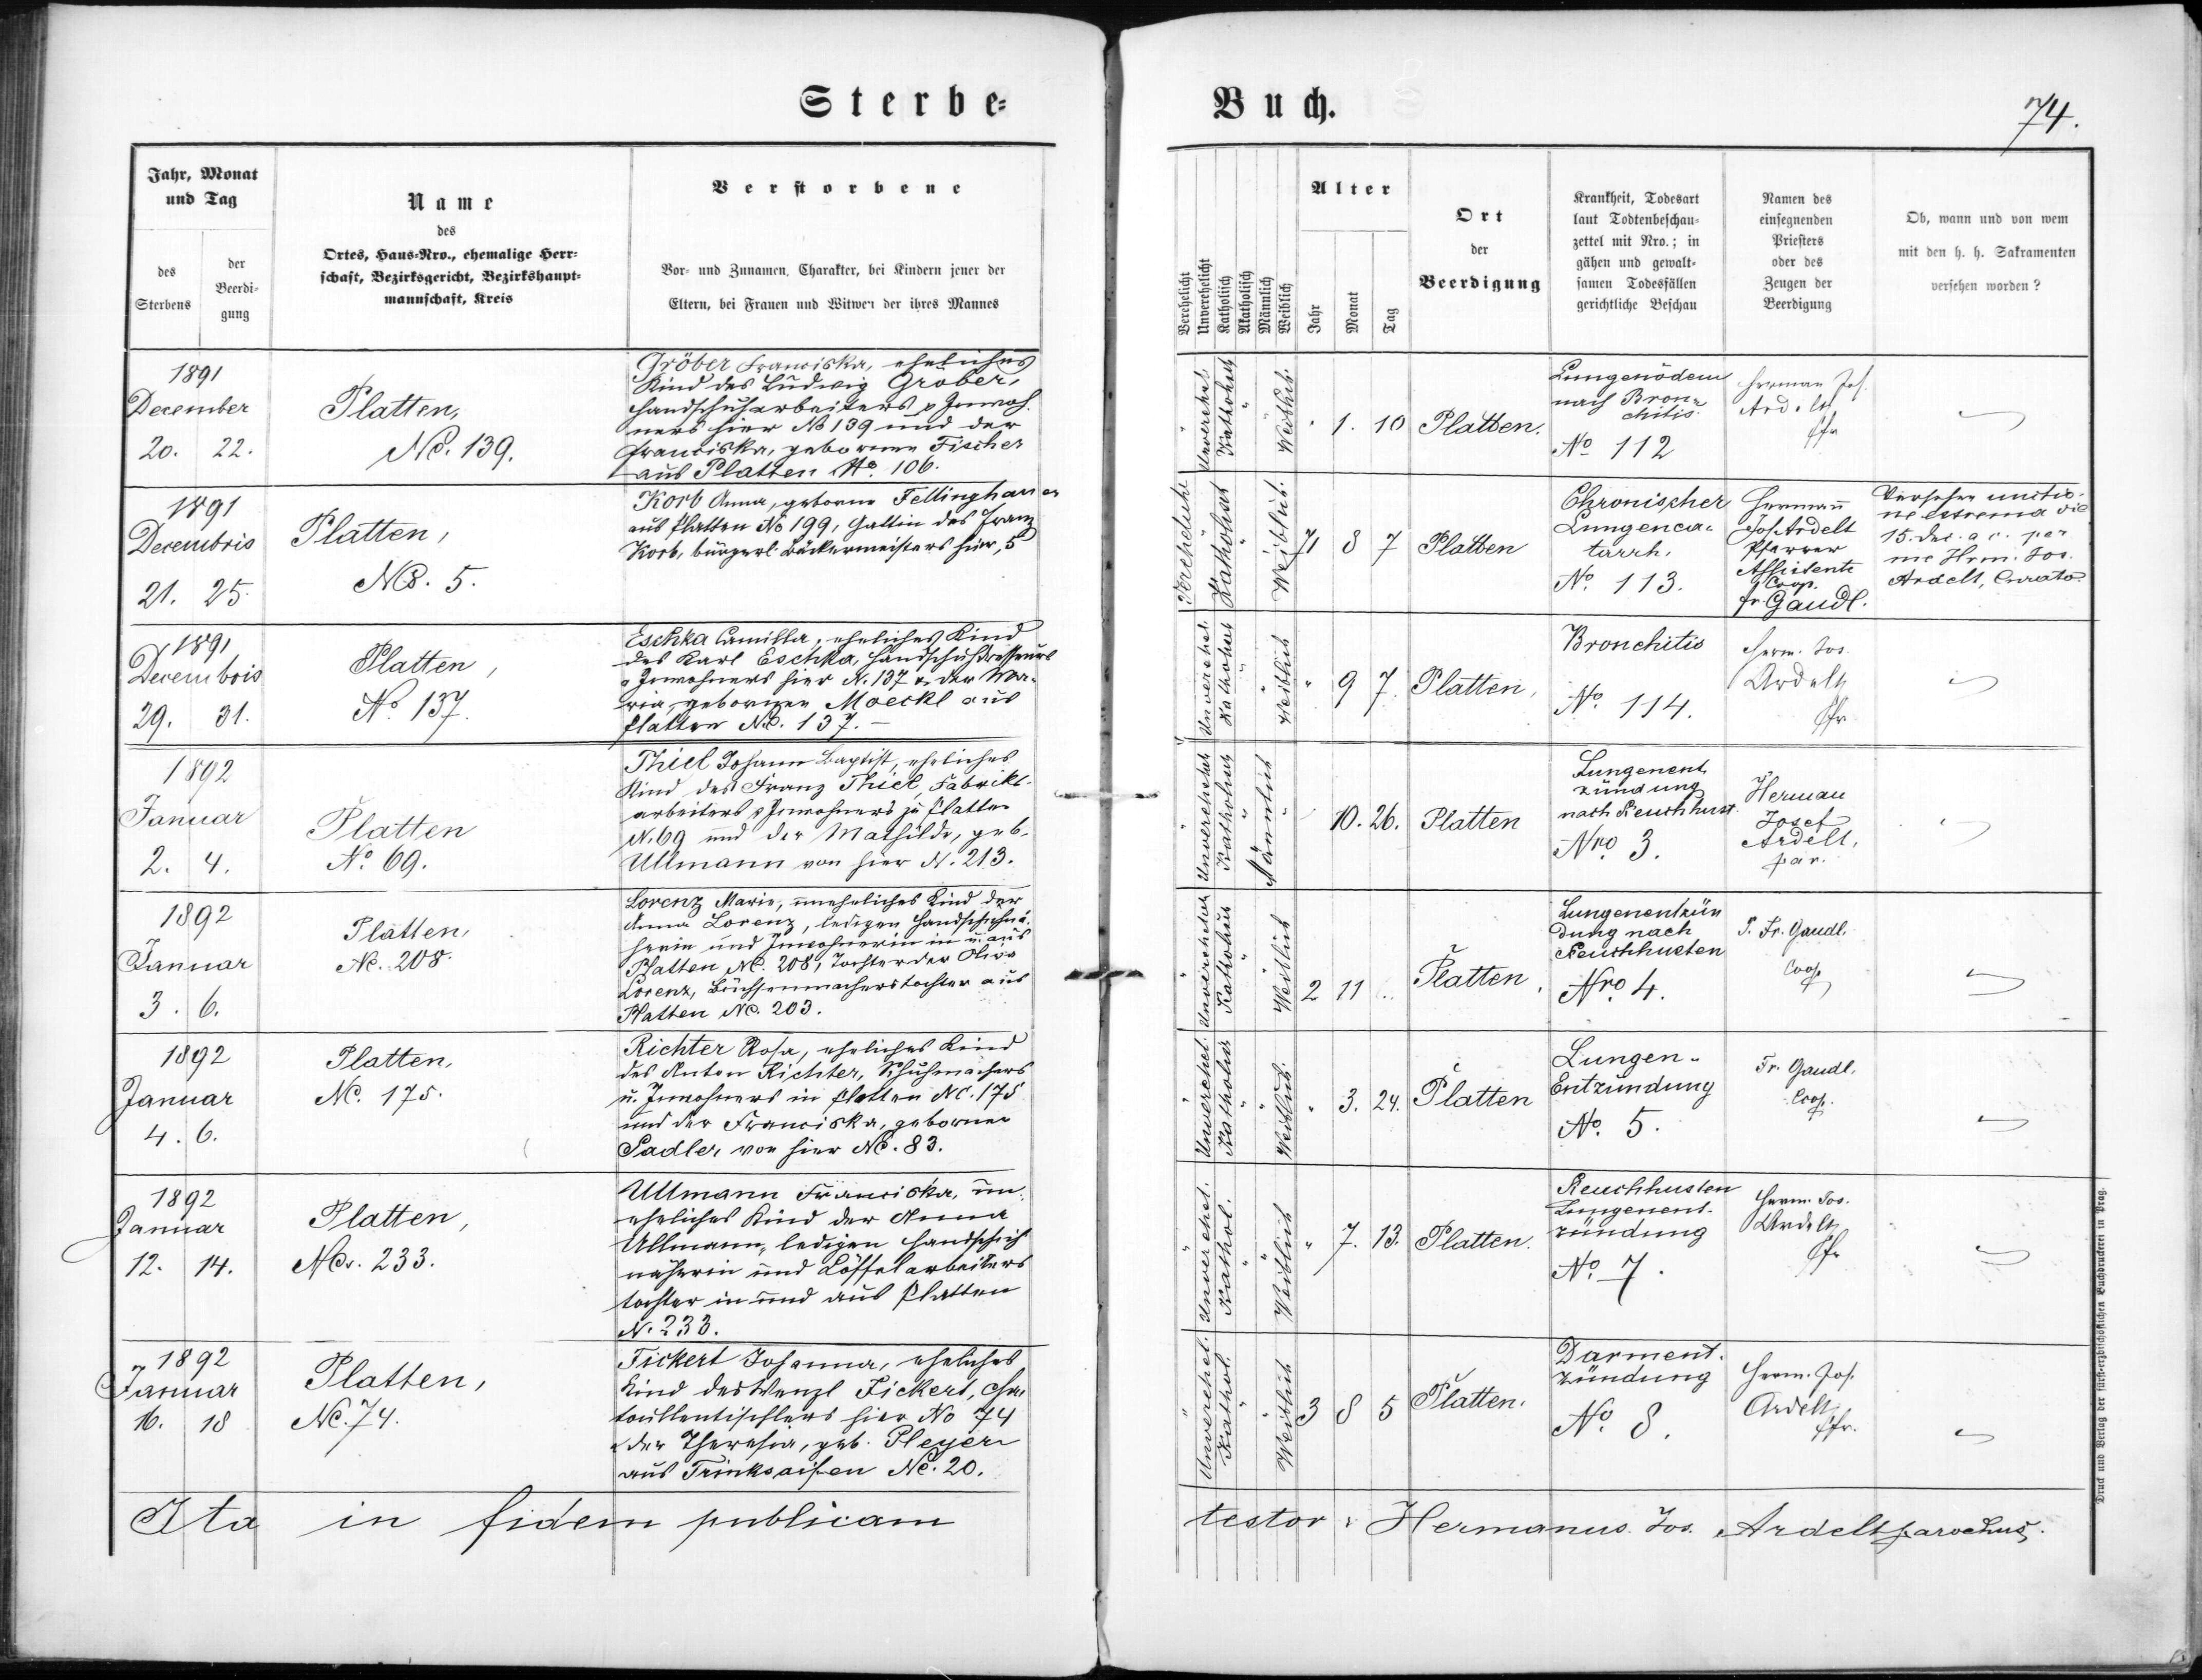 Sterbe-
Buch.
74.
Jahr, Monat
und Tag
des
Sterbens
der
Beerdi-
gung
Name
des
Ortes, Haus-Nro., ehemalige Herr-
schaft, Bezirksgericht, Bezirkshaupt-
mannschaft, Kreis
Verstorbene
Vor- und Zunamen, Charakter, bei Kindern jener der
Eltern, bei Frauen und Witwen der ihres Mannes
Verehelicht
Unverehelicht
Katholisch
Akatholisch
Männlich
Weiblich
Alter
Jahr
Monat
Tag
Ort
der
Beerdigung
Krankheit, Todesart
laut Todtenbeschau-
zettel mit Nro.; in
gähen und gewalt-
samen Todesfällen
gerichtliche Beschau
Namen des
einsegnenden
Priesters
oder des
Zeugen der
Beerdigung
Ob, wann und von wem
mit den h. h. Sakramenten
versehen worden?
1891
December
20. 22.
Platten,
No. 139.
Gröber Franciska, eheliches
Kind des Ludwig Gröber,
Handschuharbeiters u Inwoh-
ners hier No 139 und der
Franciska, geborene Fischer
aus Platten No. 106.
Unverehel.
Kathol
Weiblich
1. 10
Platten.
Lungenödem
nach Bron-
chitis.
No 112
Herman Jos.
Ardelt
Pfr
1891
Decembris
21. 25.
Platten,
No. 5.
Korb Anna, geborne Fellinghauer
aus Platten No 199, Gattin des Franz
Korb, bürgerl. Bäckermeisters hier, 5
Verehelicht
Katholisch
Weiblich.
71 8 7
Platten
Chronischer
Lungenca-
tarrh.
No. 113.
Hermann
Jos. Ardelt
Pfarrer
Assistente
Coop.
fr. Gaudl.
Versehen unctio-
ne extrema die
15. Dec. a. c. per
me Hrm. Jos.
Ardelt, Curato
1891
Decembris
29. 31.
Platten,
No. 137.
Eschka Camilla, eheliches Kind
des Karl Eschka, Handschuhdresseurs
u Inwohners hier N. 137 u. der Ma-
ria, gebornen Moeckl aus
Platten No. 137.-
Unverehel.
Katholisch
Weiblich
9 7.
Platten,
Bronchitis
No. 114.
Herm. Jos.
Ardelt
Pfr
1892
Januar
2. 4.
Platten
No. 69.
Thiel Johann Baptist, eheliches
Kind des Franz Thiel, Fabriks-
arbeiters u Inwohners zu Platten
N. 69 und der Mathilde, geb.
Ullmann von hier N. 213.
Unverehelicht
Katholisch
Männlich
10. 26.
Platten
Lungenent
zündung
nach Keuchhust.
Nro 3.
Herman
Josef
Ardelt,
par.
1892
Januar
3. 6.
Platten,
No. 208.
Lorenz Marie, uneheliches Kind der
Anna Lorenz, ledigen Handschuhnä-
herin und Inwohnerin in u. aus
Platten No. 208, Tochter der
Lorenz, Büchsenmacherstochter aus
Platten No. 203.
Unverehelicht
Katholisch
Weiblich
2 11
Platten.
Lungenentzün
dung nach
Keuchhusten
Nro 4.
P. Fr. Gaudl.
Coop
1892
Januar
4. 6.
Platten,
No. 175.
Richter Rosa, eheliches Kind
des Anton Richter, Schuhmachers
u. Inwohners in Platten No. 175
und der Franciska, geborner
Sadler, von hier No. 83.
Unverehel.
Katholisch
Weiblich.
3. 24.
Platten
Lungen-
Entzündung
No. 5.
Fr. Gaudl.
Coop.
1892
Januar
12. 14.
Platten,
No. 233.
Ullmann Franciska, un-
eheliches Kind der Anna
Ullmann, ledigen Handschuh
näherin und Löffelarbeiters
tochter in und aus Platten
N. 233.
Unverehel.
Kathol.
Weiblich
7. 13.
Platten.
Keuchhusten
Lungenent-
zündung
No. 7.
Herm. Jos.
Ardelt
Pfr
1892
Januar
16. 18
Platten,
No. 74.
Fickert Johanna, eheliches
Kind des Wenzl Fickert, Cha
toullentischlers hier No 74
u der Theresia, geb. Pleyer
aus Trinksaifen No. 20.
Unverehel.
Kathol.
Weiblich
3 8 5
Platten.
Darment-
zündung
No. 8.
Herm. Jos.
Ardelt
Pfr.
Ita in fidem publicam
testor: Hermanus Jos. Ardelt parochus.
Druck und Verlag der fürst-erzbischöflichen Buchdruckerei in Prag.